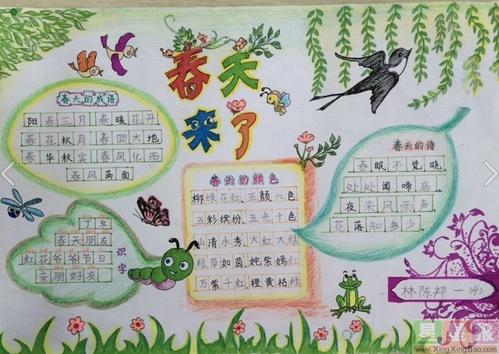 春天
来了
春天的成语
阳春三月 春暖花开
春花秋月 春回大地
春华秋实 春风化雨
春风满面
春天的颜色
柳绿花红、五颜六色
五彩缤纷、五光十色
山清水秀、大红大绿
绿草如茵、姹紫嫣红
万紫千红、橙黄桔绿
春天的诗
春眠不觉晓，
处处闻啼鸟。
夜来风雨声，
花落知多少。
识字
丁冬
春天朋友
红花爷爷节日
亲朋好友
林陈郑一(4)
www.XingXingBao.com